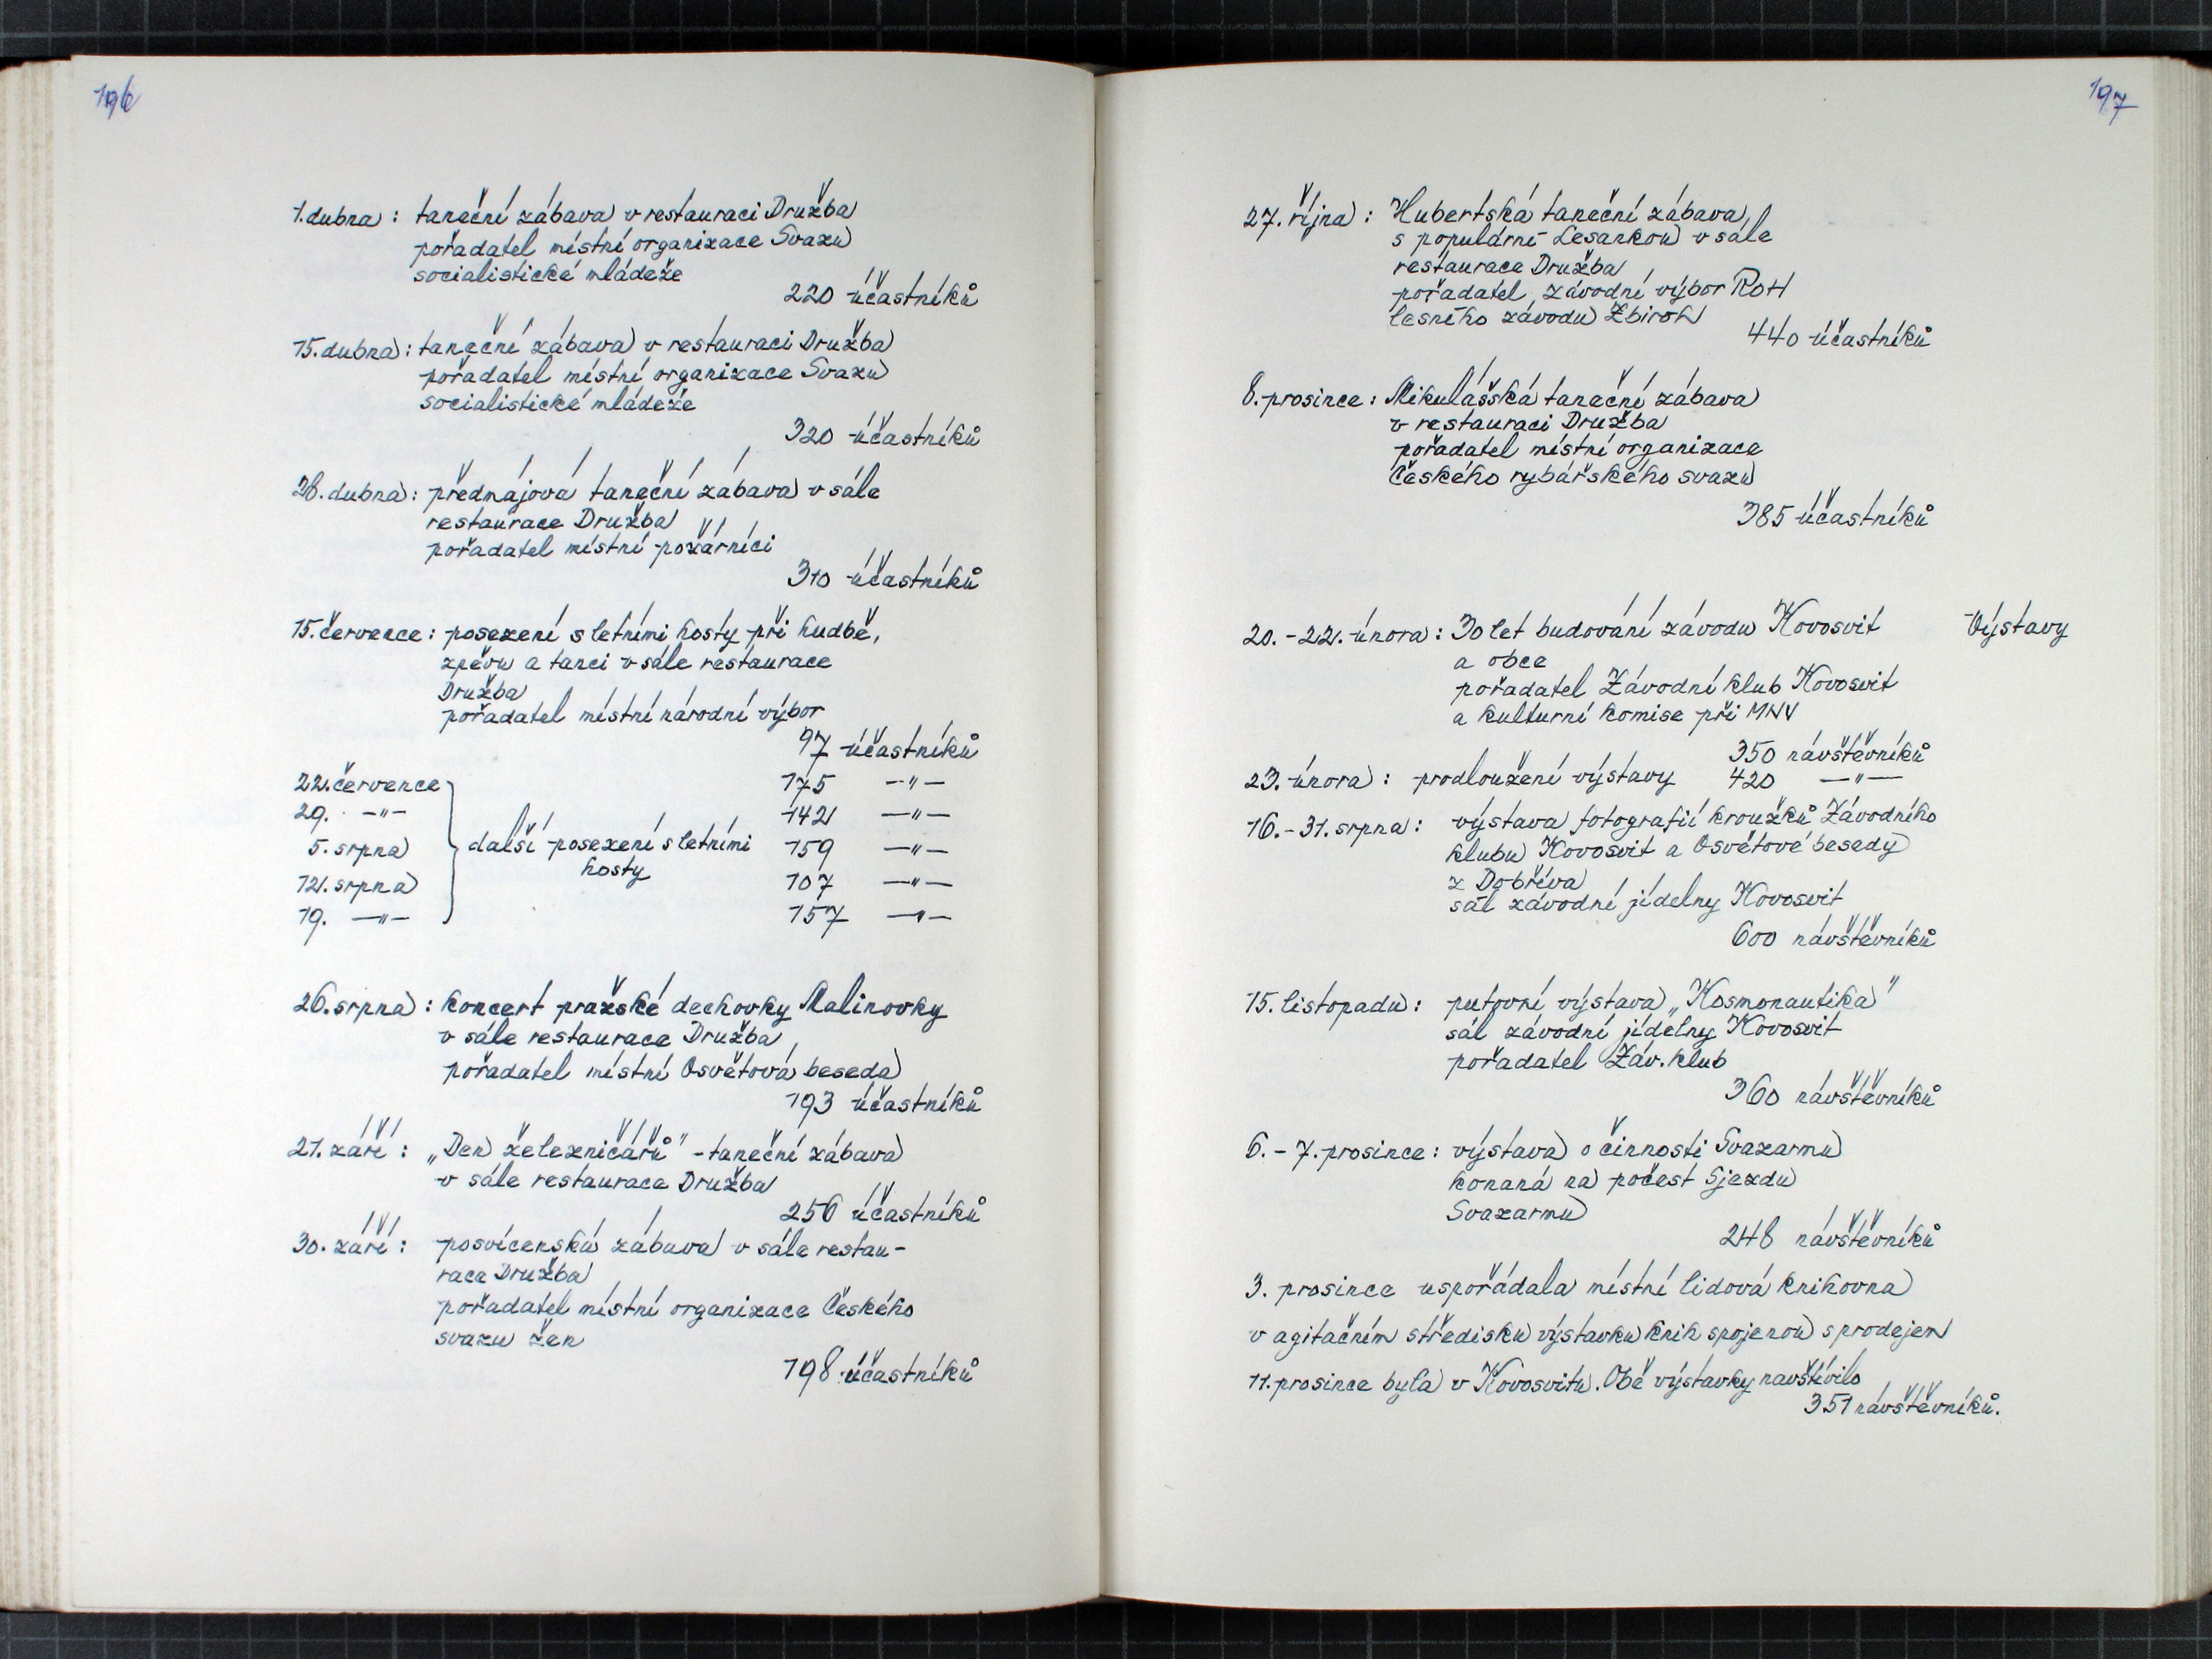 196
1. dubna: taneční zábava v restauraci Družba
pořadatel místní organizace Svazu
socialistické mládeže
220 účastníků
15. dubna: taneční zábava v restauraci Družba
pořadatel místní organizace Svazu
socialistické mládeže
320 účastníků
28. dubna: předmájová taneční zábava v sále
restaurace Družba
pořadatel místní požárníci
310 účastníků
15. července: posezení s letními hosty při hudbě,
zpěvu a tanci v sále restaurace
Družba
pořadatel místní národní výbor
97 účastníků
22. července 175 —"—
29. —"— 142 —"—
5. srpna další posezení s letními 159 —"—
12. srpna hosty 107 —"—
19. —"— 157 —"—
26. srpna: koncert pražské dechovky Malinovky
v sále restaurace Družba
pořadatel místní Osvětová beseda
193 účastníků
21. září: „Den železničářů" - taneční zábava
v sále restaurace Družba
256 účastníků
30. září: posvícenská zábava v sále restau-
race Družba
pořadatel místní organizace Českého
svazu žen
198 účastníků
197
27. října: Hubertská taneční zábava
s populární Lesankou v sále
restaurace Družba
pořadatel závodní výbor ROH
lesního závodu Zbiroh
440 účastníků
8. prosince: Mikulášská taneční zábava
v restauraci Družba
pořadatel místní organizace
Českého rybářského svazu
385 účastníků
20. - 22. února: 30 let budování závodu Kovosvit Výstavy
a obce
pořadatel Závodní klub Kovosvit
a kulturní komise při MNV
350 návštěvníků
23. února: prodloužení výstavy 420 —"—
16. - 31. srpna: výstava fotografií kroužků Závodního
klubu Kovosvit a Osvětové besedy
z Dobříva
sál závodní jídelny Kovosvit
600 návštěvníků
15. listopadu: putovní výstava „Kosmonautika"
sál závodní jídelny Kovosvit
pořadatel Záv. klub
360 návštěvníků
6. - 7. prosince: výstava o činnosti Svazarmu
konaná na počest Sjezdu
Svazarmu
248 návštěvníků
3. prosince uspořádala místní lidová knihovna
v agitačním středisku výstavku knih spojenou s prodejem
11. prosince byla v Kovosvitu. Obě výstavky navštívilo
351 návštěvníků.